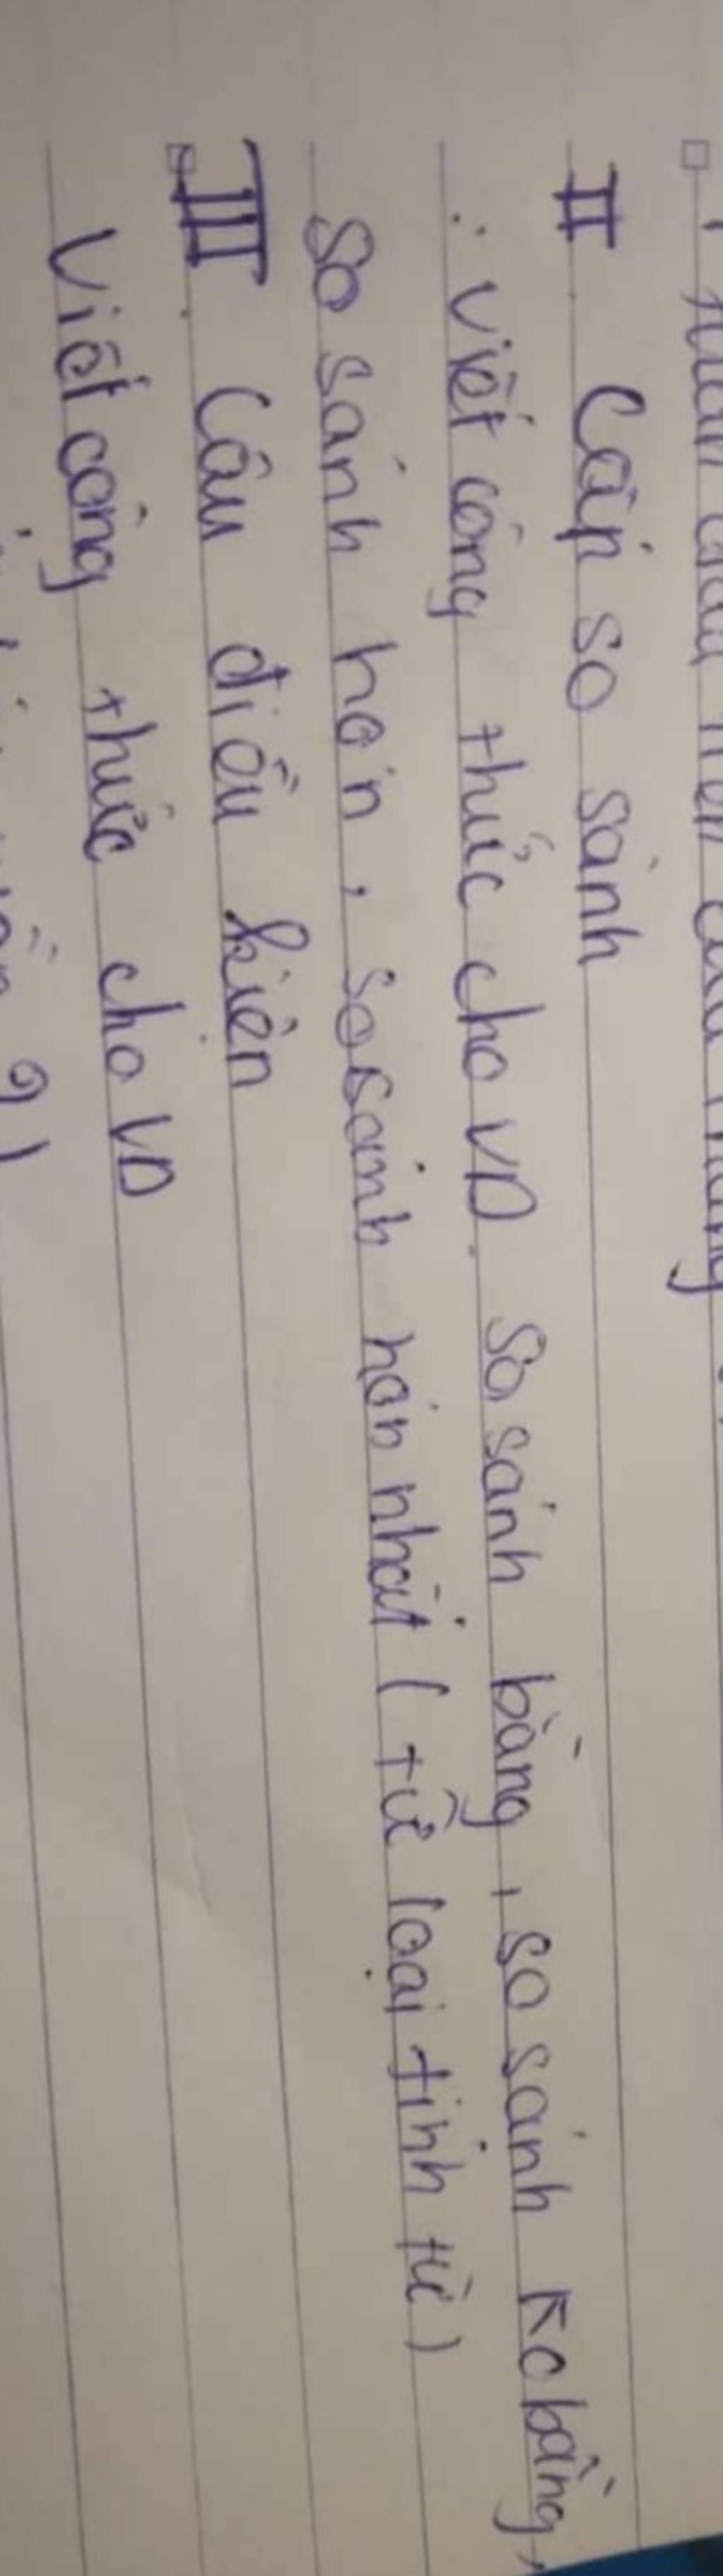 II. Cấp so sánh
: Viết công thức cho VD. So sánh bằng, so sánh ko bằng,
So sánh hơn, so sánh hơn nhất (từ loại tính từ)
III. Câu điều kiện
Viết công thức cho VD